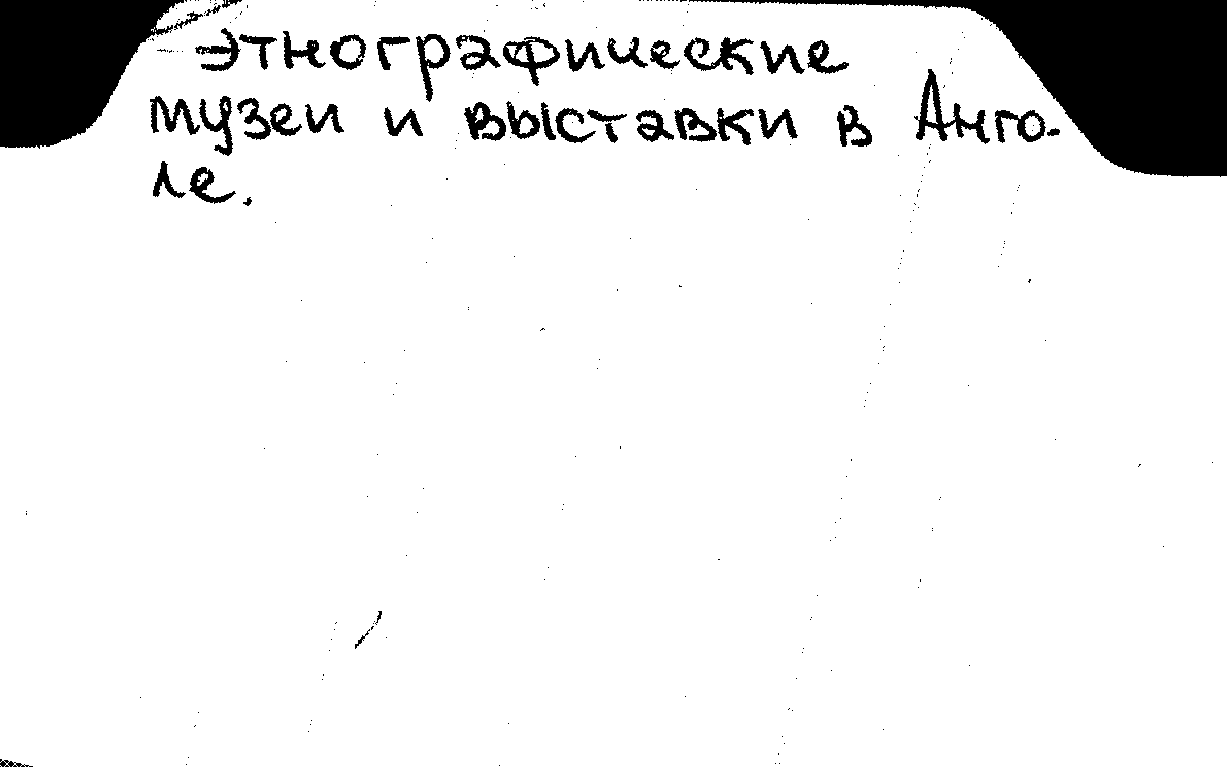 Этнографические
музеи и выставки в Анго-
ле.